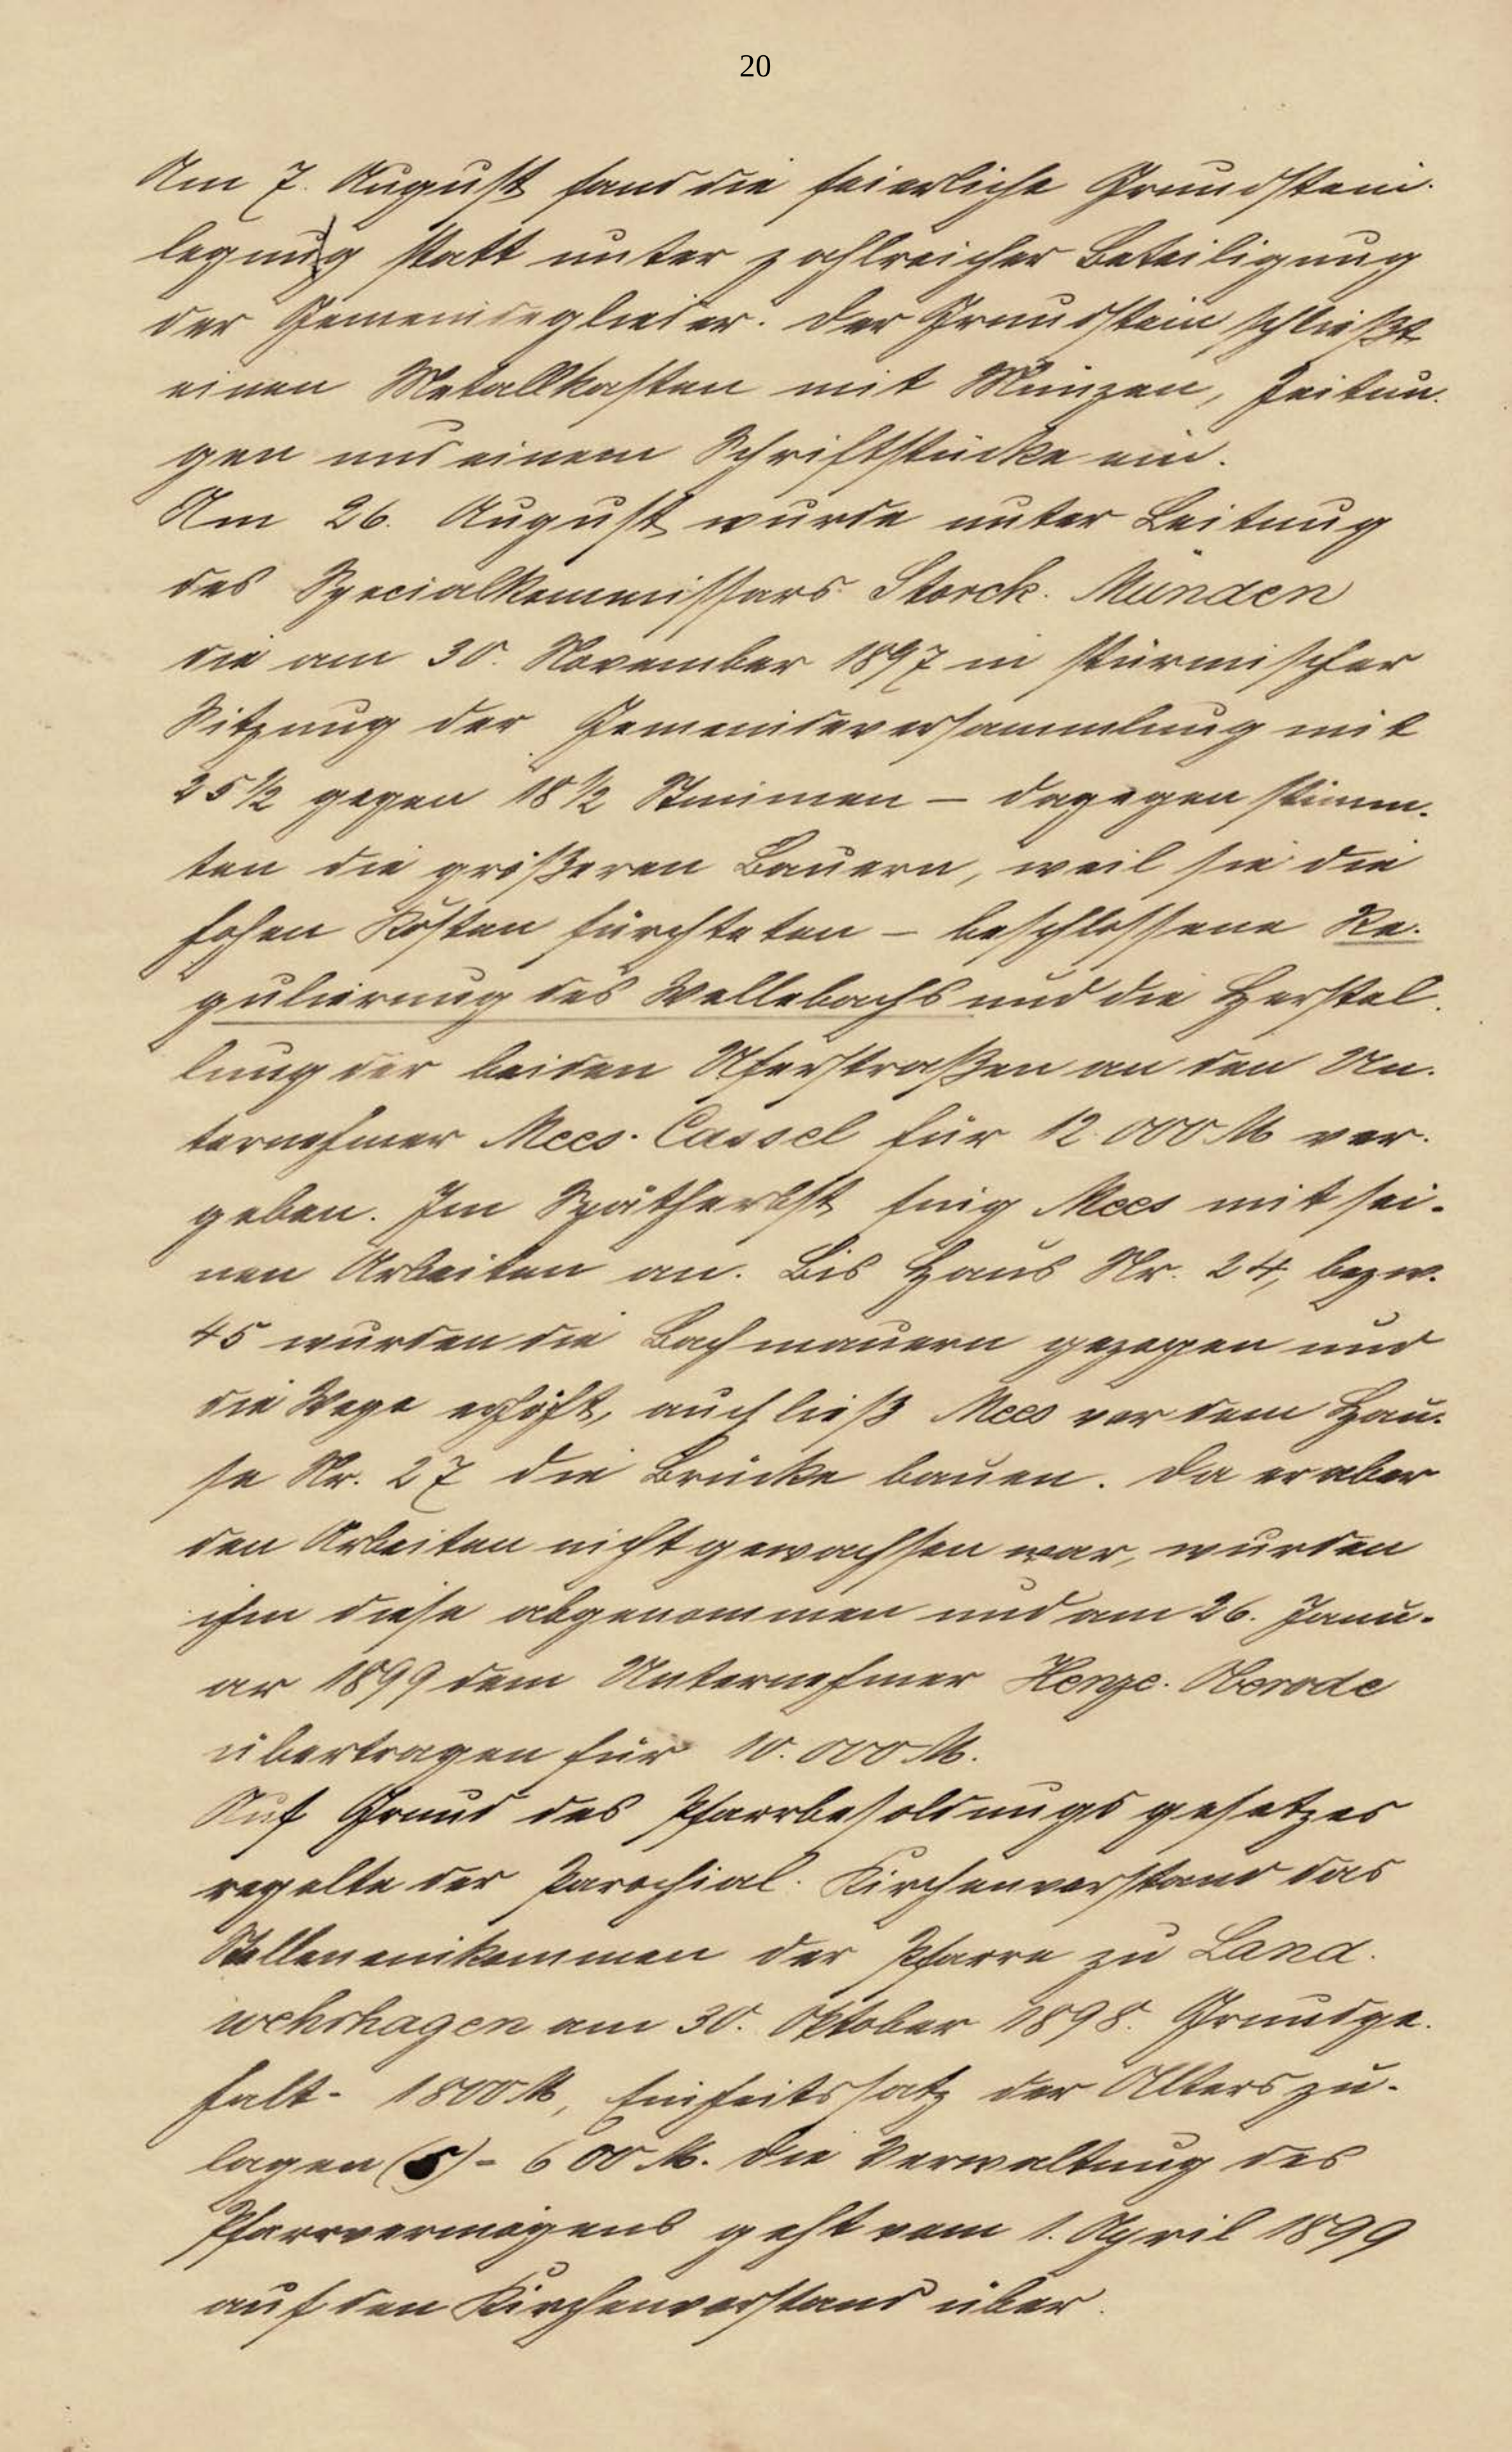 20
Am 7. August fand die feierliche Grundstein-
legung statt unter zahlreicher Beteiligung
der Gemeindeglieder. Der Grundstein schließt
einen Metallkasten mit Münzen, Zeitun-
gen und einem Schriftstücke ein.
Am 26. August wurde unter Leitung
des Specialkommissars Storck-Münden
die am 30. November 1897 in stürmischer
Sitzung der Gemeindeversammlung mit
25 1/2 gegen 18 1/2 Stimmen – dagegen stimm-
ten die größeren Bauern, weil sie die
hohen Kosten fürchteten – beschlossene Re-
gulierung des Wellebachs und die Herstel-
lung der beiden Uferstraßen an den Un-
ternehmer Mees-Cassel für 12.000 M ver-
geben. Im Spätherbst fing Mees mit sei-
nen Arbeiten an. Bis Haus Nr. 24, bezw.
45 wurden die Bachmauern gezogen und
die Wege erhöht, auch ließ Mees vor dem Hau-
se Nr. 27 die Brücke bauen. Da er aber
den Arbeiten nicht gewachsen war, wurden
ihm diese abgenommen und am 26. Janu-
ar 1899 dem Unternehmer Henze-Oberode
übertragen für 10.000 M.
Auf Grund des Pfarrbesoldungsgesetzes
regelte der Parochial-Kirchenvorstand das
Stelleneinkommen der Pfarre zu Land-
wehrhagen am 30. Oktober 1898. Grundge-
halt - 1800 M, Einheitssatz der Alterszu-
lagen (5) - 600 M. Die Verwaltung des
Pfarrvermögens geht vom 1. April 1899
auf den Kirchenvorstand über.